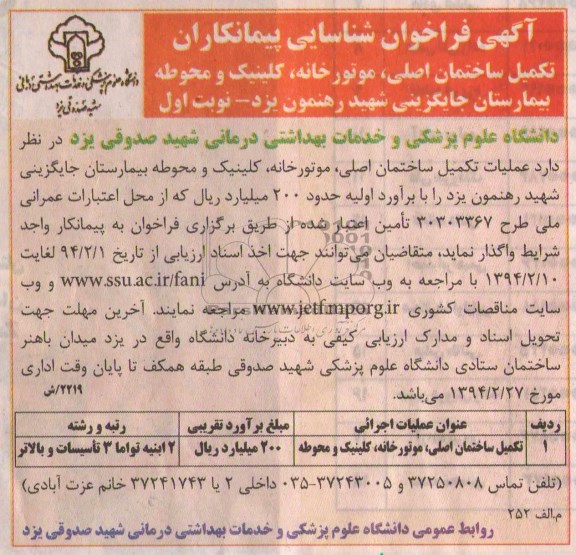 آگهی فراخوان شناسایی پیمانکاران
تکمیل ساختمان اصلی، موتورخانه، کلینیک و محوطه
بیمارستان جایگزینی شهید رهنمون یزد – نوبت اول
دانشگاه علوم پزشکی و خدمات بهداشتی درمانی
شهید صدوقی یزد
دانشگاه علوم پزشکی و خدمات بهداشتی درمانی شهید صدوقی یزد در نظر
دارد عملیات تکمیل ساختمان اصلی، موتورخانه، کلینیک و محوطه بیمارستان جایگزینی
شهید رهنمون یزد را با برآورد اولیه حدود ۲۰۰ میلیارد ریال که از محل اعتبارات عمرانی
ملی طرح ۳۰۳۰۳۳۶۷ تأمین اعتبار شده از طریق برگزاری فراخوان به پیمانکار واجد
شرایط واگذار نماید، متقاضیان می‌توانند جهت اخذ اسناد ارزیابی از تاریخ ۹۴/۲/۱ لغایت
۱۳۹۴/۲/۱۰ با مراجعه به وب سایت دانشگاه به آدرس www.ssu.ac.ir/fani و وب
سایت مناقصات کشوری www.jetf.mporg.ir مراجعه نمایند. آخرین مهلت جهت
تحویل اسناد و مدارک ارزیابی کیفی به دبیرخانه دانشگاه واقع در یزد میدان باهنر
ساختمان ستادی دانشگاه علوم پزشکی شهید صدوقی طبقه همکف تا پایان وقت اداری
مورخ ۱۳۹۴/۲/۲۷ می‌باشد. ۲۲۱۹/ش
ردیف عنوان عملیات اجرائی مبلغ برآورد تقریبی رتبه و رشته
۱ تکمیل ساختمان اصلی، موتورخانه، کلینیک و محوطه ۲۰۰ میلیارد ریال ۲ ابنیه تواما ۳ تأسیسات و بالاتر
(تلفن تماس ۳۷۲۵۰۸۰۸ و ۳۷۲۴۳۰۰۵-۰۳۵ داخلی ۲ یا ۳۷۲۴۱۷۴۳ خانم عزت آبادی)
م.الف ۲۵۲
روابط عمومی دانشگاه علوم پزشکی و خدمات بهداشتی درمانی شهید صدوقی یزد